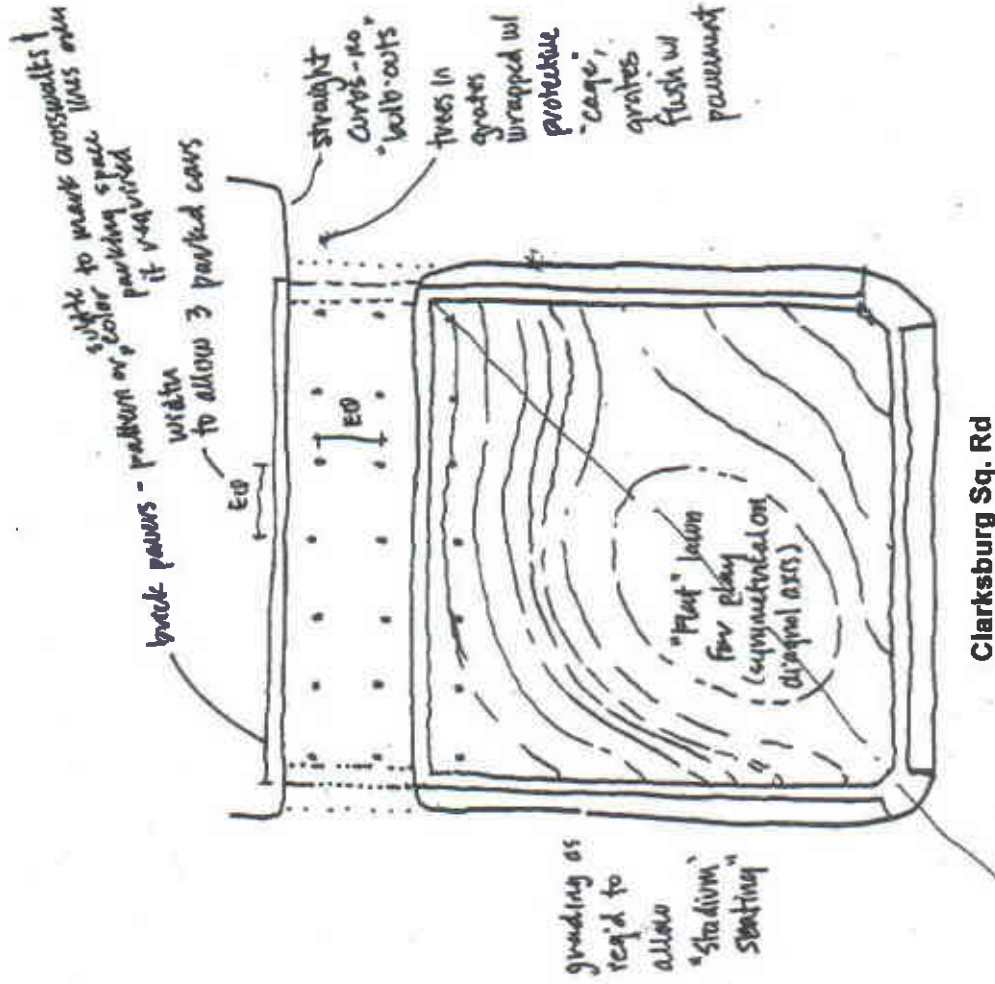 brick pavers - pattern or color
subtle to mark crosswalks &
parking space lines over
parking
if required
width
to allow 3 parked cars
EQ
EQ
straight
curbs - no
"bulb-outs"
trees in
grates
wrapped w/
protective
"cage,
grates
flush w/
pavement
"Flat" lawn
for play
(symmetrical on
diagnol axis)
grading as
req'd to
allow
"stadium"
seating"
Clarksburg Sq. Rd